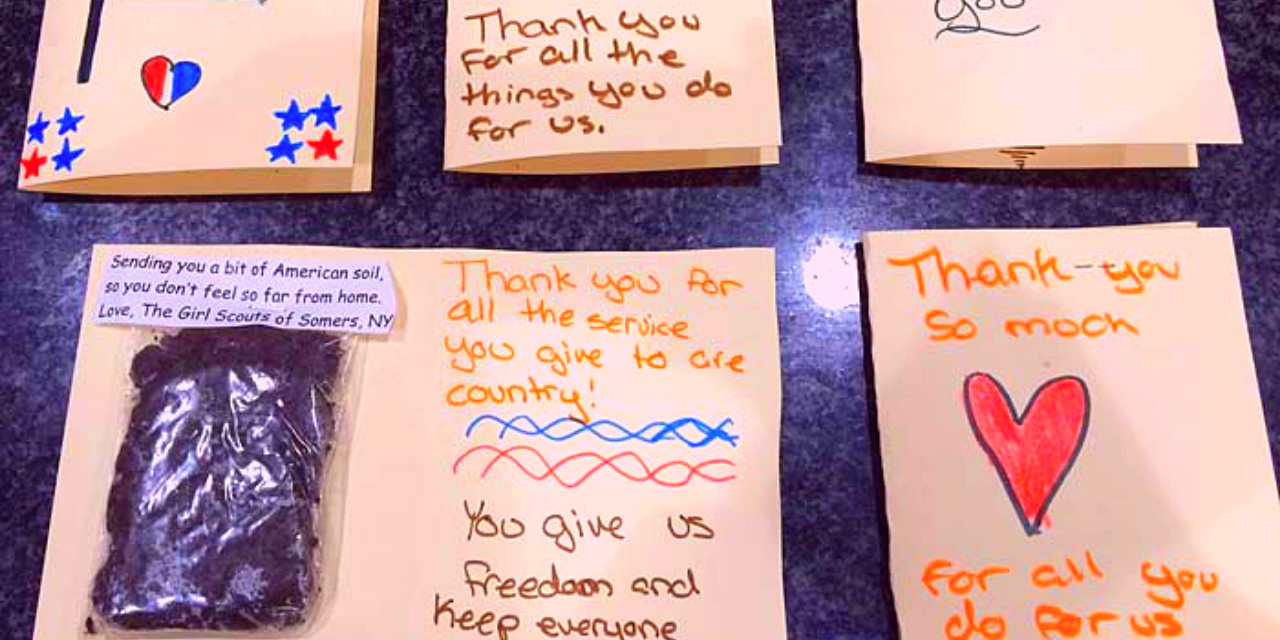 Thank you
For all the
things you do
for us.
you
Sending you a bit of American soil,
so you don't feel so far from home.
Love, The Girl Scouts of Somers, NY
Thank you for
all the service
you give to are
country!
You give us
freedom and
Keep everyone
Thank-you
so much
for all you
do for us